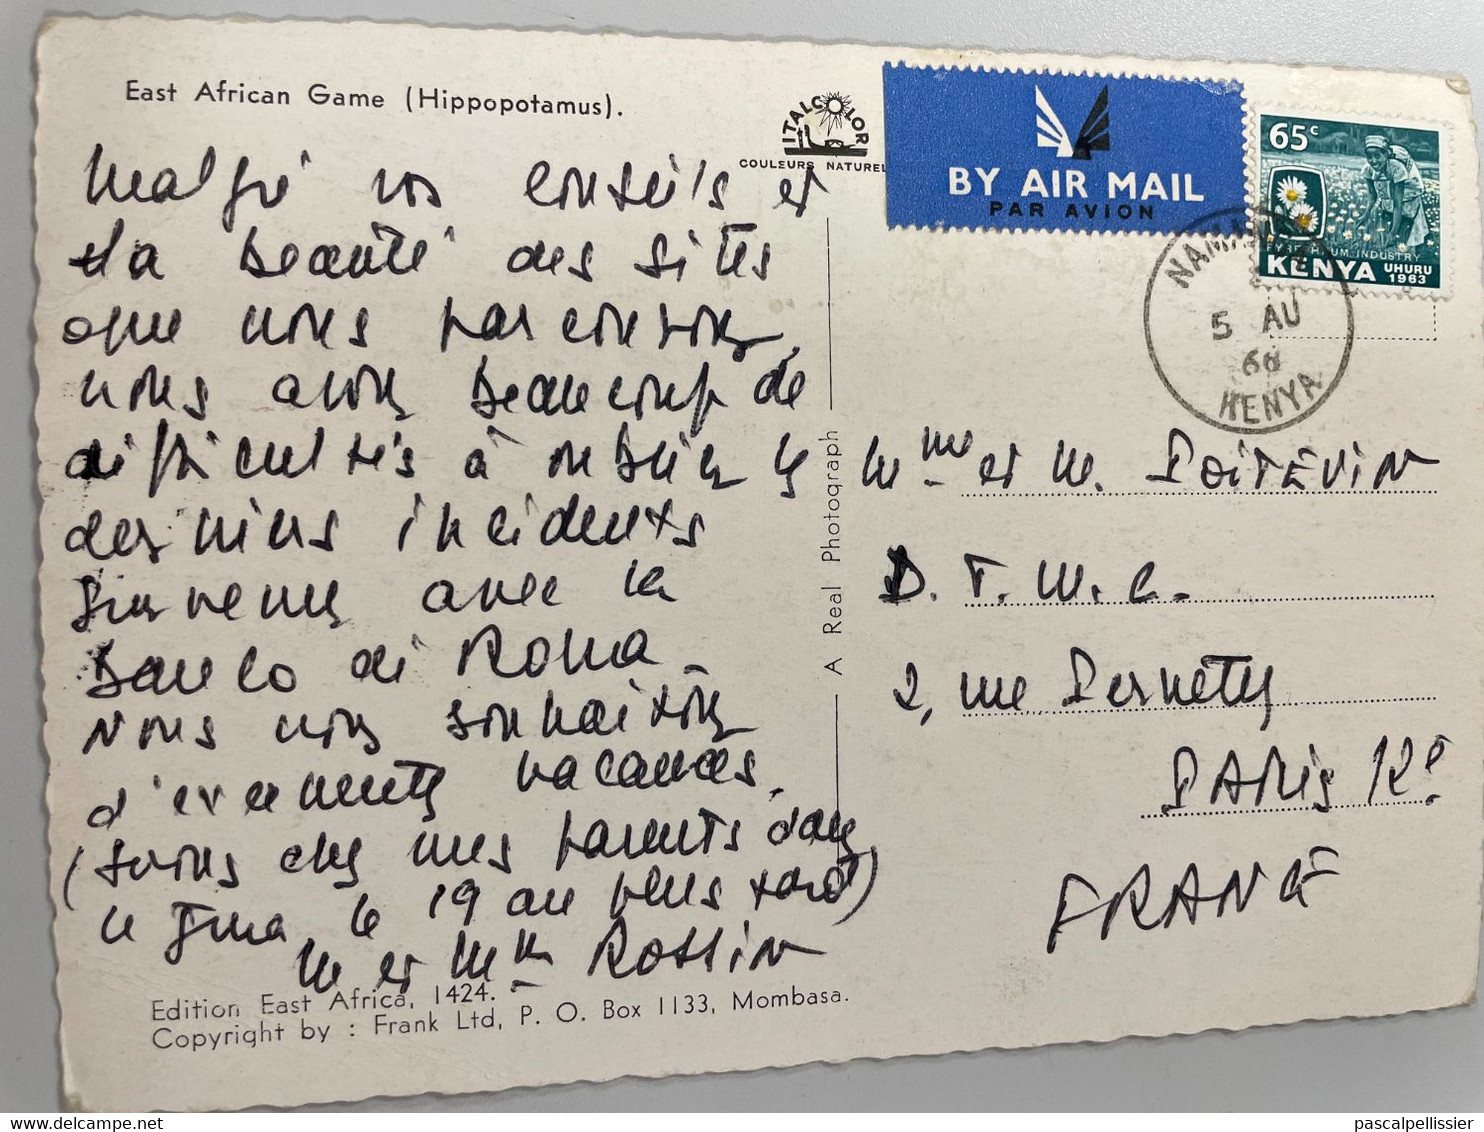 East African Game (Hippopotamus).
ITALCOLOR
COULEURS NATUREL
BY AIR MAIL
PAR AVION
65c
INDUSTRY
KENYA UHURU 1963
5 AU
68
KENYA
Malgré vos conseils et
la beauté des sites
que nous parcourons,
nous avons beaucoup de
difficultés à oublier les
derniers incidents
survenus avec la
Banco di Roma.
Nous vous souhaitons
vacances.
(serons chez mes parents dans
le Jura, le 19 au plus tard)
M et Mme ROSSIN
A Real Photograph
Mme et M. POITEVIN
D. T. M. C.
2, rue Pernety
PARIS
FRANCE
Edition East Africa, 1424.
Copyright by : Frank Ltd, P. O. Box 1133, Mombasa.
pascalpellissier